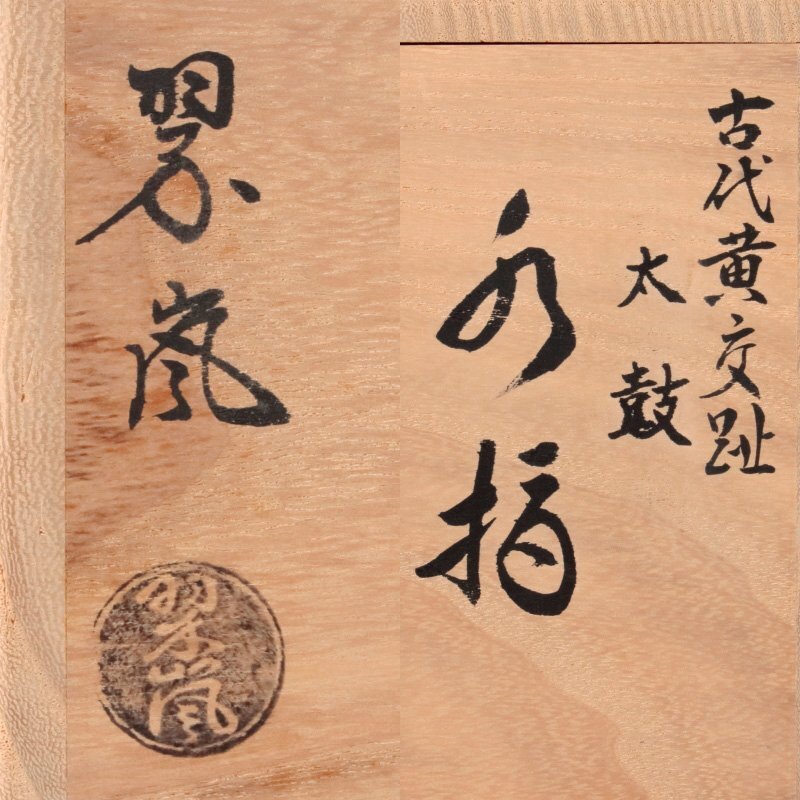 古代黄交趾
太鼓
水指
翠嵐
翠嵐